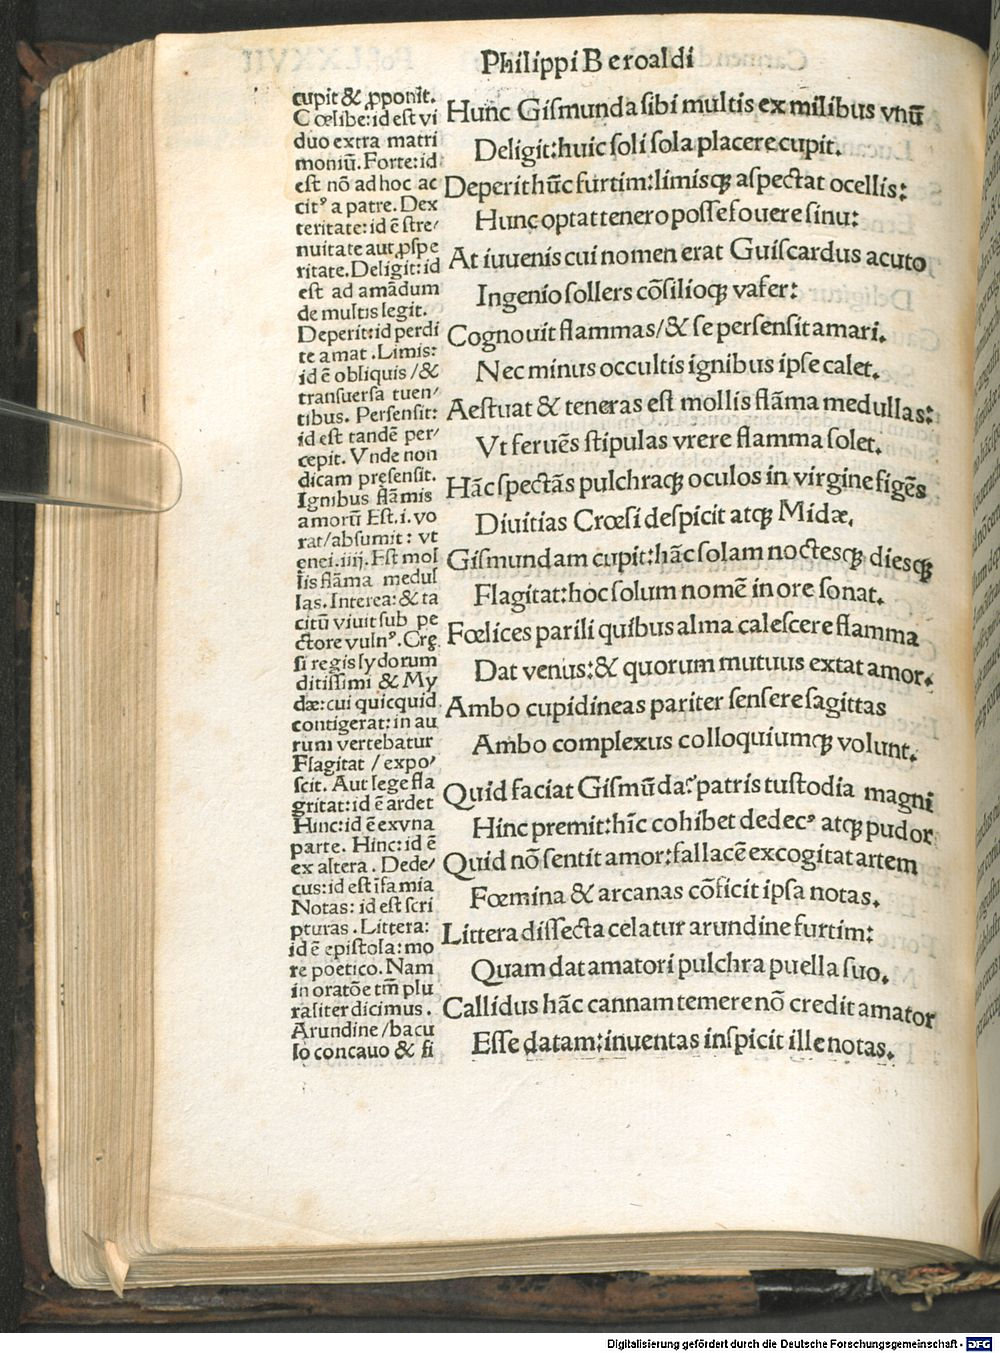 Philippi Beroaldi
cupit & ꝓponit.
Cœlibe: id est vi
duo extra matri
moniū. Forte: id
est nō ad hoc ac
citꝰ a patre. Dex
teritate: id ē stre/
nuitate aut ꝓspe
ritate. Deligit: id
est ad amādum
de multis legit.
Deperit: id perdi
te amat. Limis:
id ē obliquis / &
transuersa tuen/
tibus. Persensit:
id est tandē per/
cepit. Vnde non
dicam pręsensit.
Ignibus flāmis
amorū Est. i. vo
rat / absumit: vt
enei. iiij. Est mol
lis flāma medul
las. Interea: & ta
citū viuit sub pe
ctore vulnꝰ. Crę
si regis lydorum
ditissimi & My
dæ: cui quicquid
contigerat: in au
rum vertebatur
Flagitat / expo/
scit. Aut lege fla
gritat: id ē ardet
Hinc: id ē ex vna
parte. Hinc: id ē
ex altera. Dede/
cus: id est īfamia
Notas: id est scri
pturas. Littera:
id ē epistola: mo
re poetico. Nam
in oratōe tm̄ plu
raliter dicimus.
Arundine / bacu
lo concauo & fi
Hunc Gismunda sibi multis ex milibus vnū
Deligit: huic soli sola placere cupit.
Deperit hūc furtim: limisqꝫ aspectat ocellis:
Hunc optat tenero posse fouere sinu:
At iuuenis cui nomen erat Guiscardus acuto
Ingenio sollers cōsilioqꝫ vafer:
Cognouit flammas / & se persensit amari.
Nec minus occultis ignibus ipse calet.
Aestuat & teneras est mollis flāma medullas:
Vt feruēs stipulas vrere flamma solet.
Hāc spectās pulchraqꝫ oculos in virgine figēs
Diuitias Crœsi despicit atqꝫ Midæ.
Gismundam cupit: hāc solam noctesqꝫ diesqꝫ
Flagitat: hoc solum nomē in ore sonat.
Fœlices parili quibus alma calescere flamma
Dat venus: & quorum mutuus extat amor.
Ambo cupidineas pariter sensere sagittas
Ambo complexus colloquiumqꝫ volunt.
Quid faciat Gismūda? patris tustodia magni
Hinc premit: hīc cohibet dedecꝰ atqꝫ pudor
Quid nō sentit amor: fallacē excogitat artem
Fœmina & arcanas cōficit ipsa notas.
Littera dissecta celatur arundine furtim:
Quam dat amatori pulchra puella suo.
Callidus hāc cannam temere nō credit amator
Esse datam: inuentas inspicit ille notas.
Digitalisierung gefördert durch die Deutsche Forschungsgemeinschaft - DFG